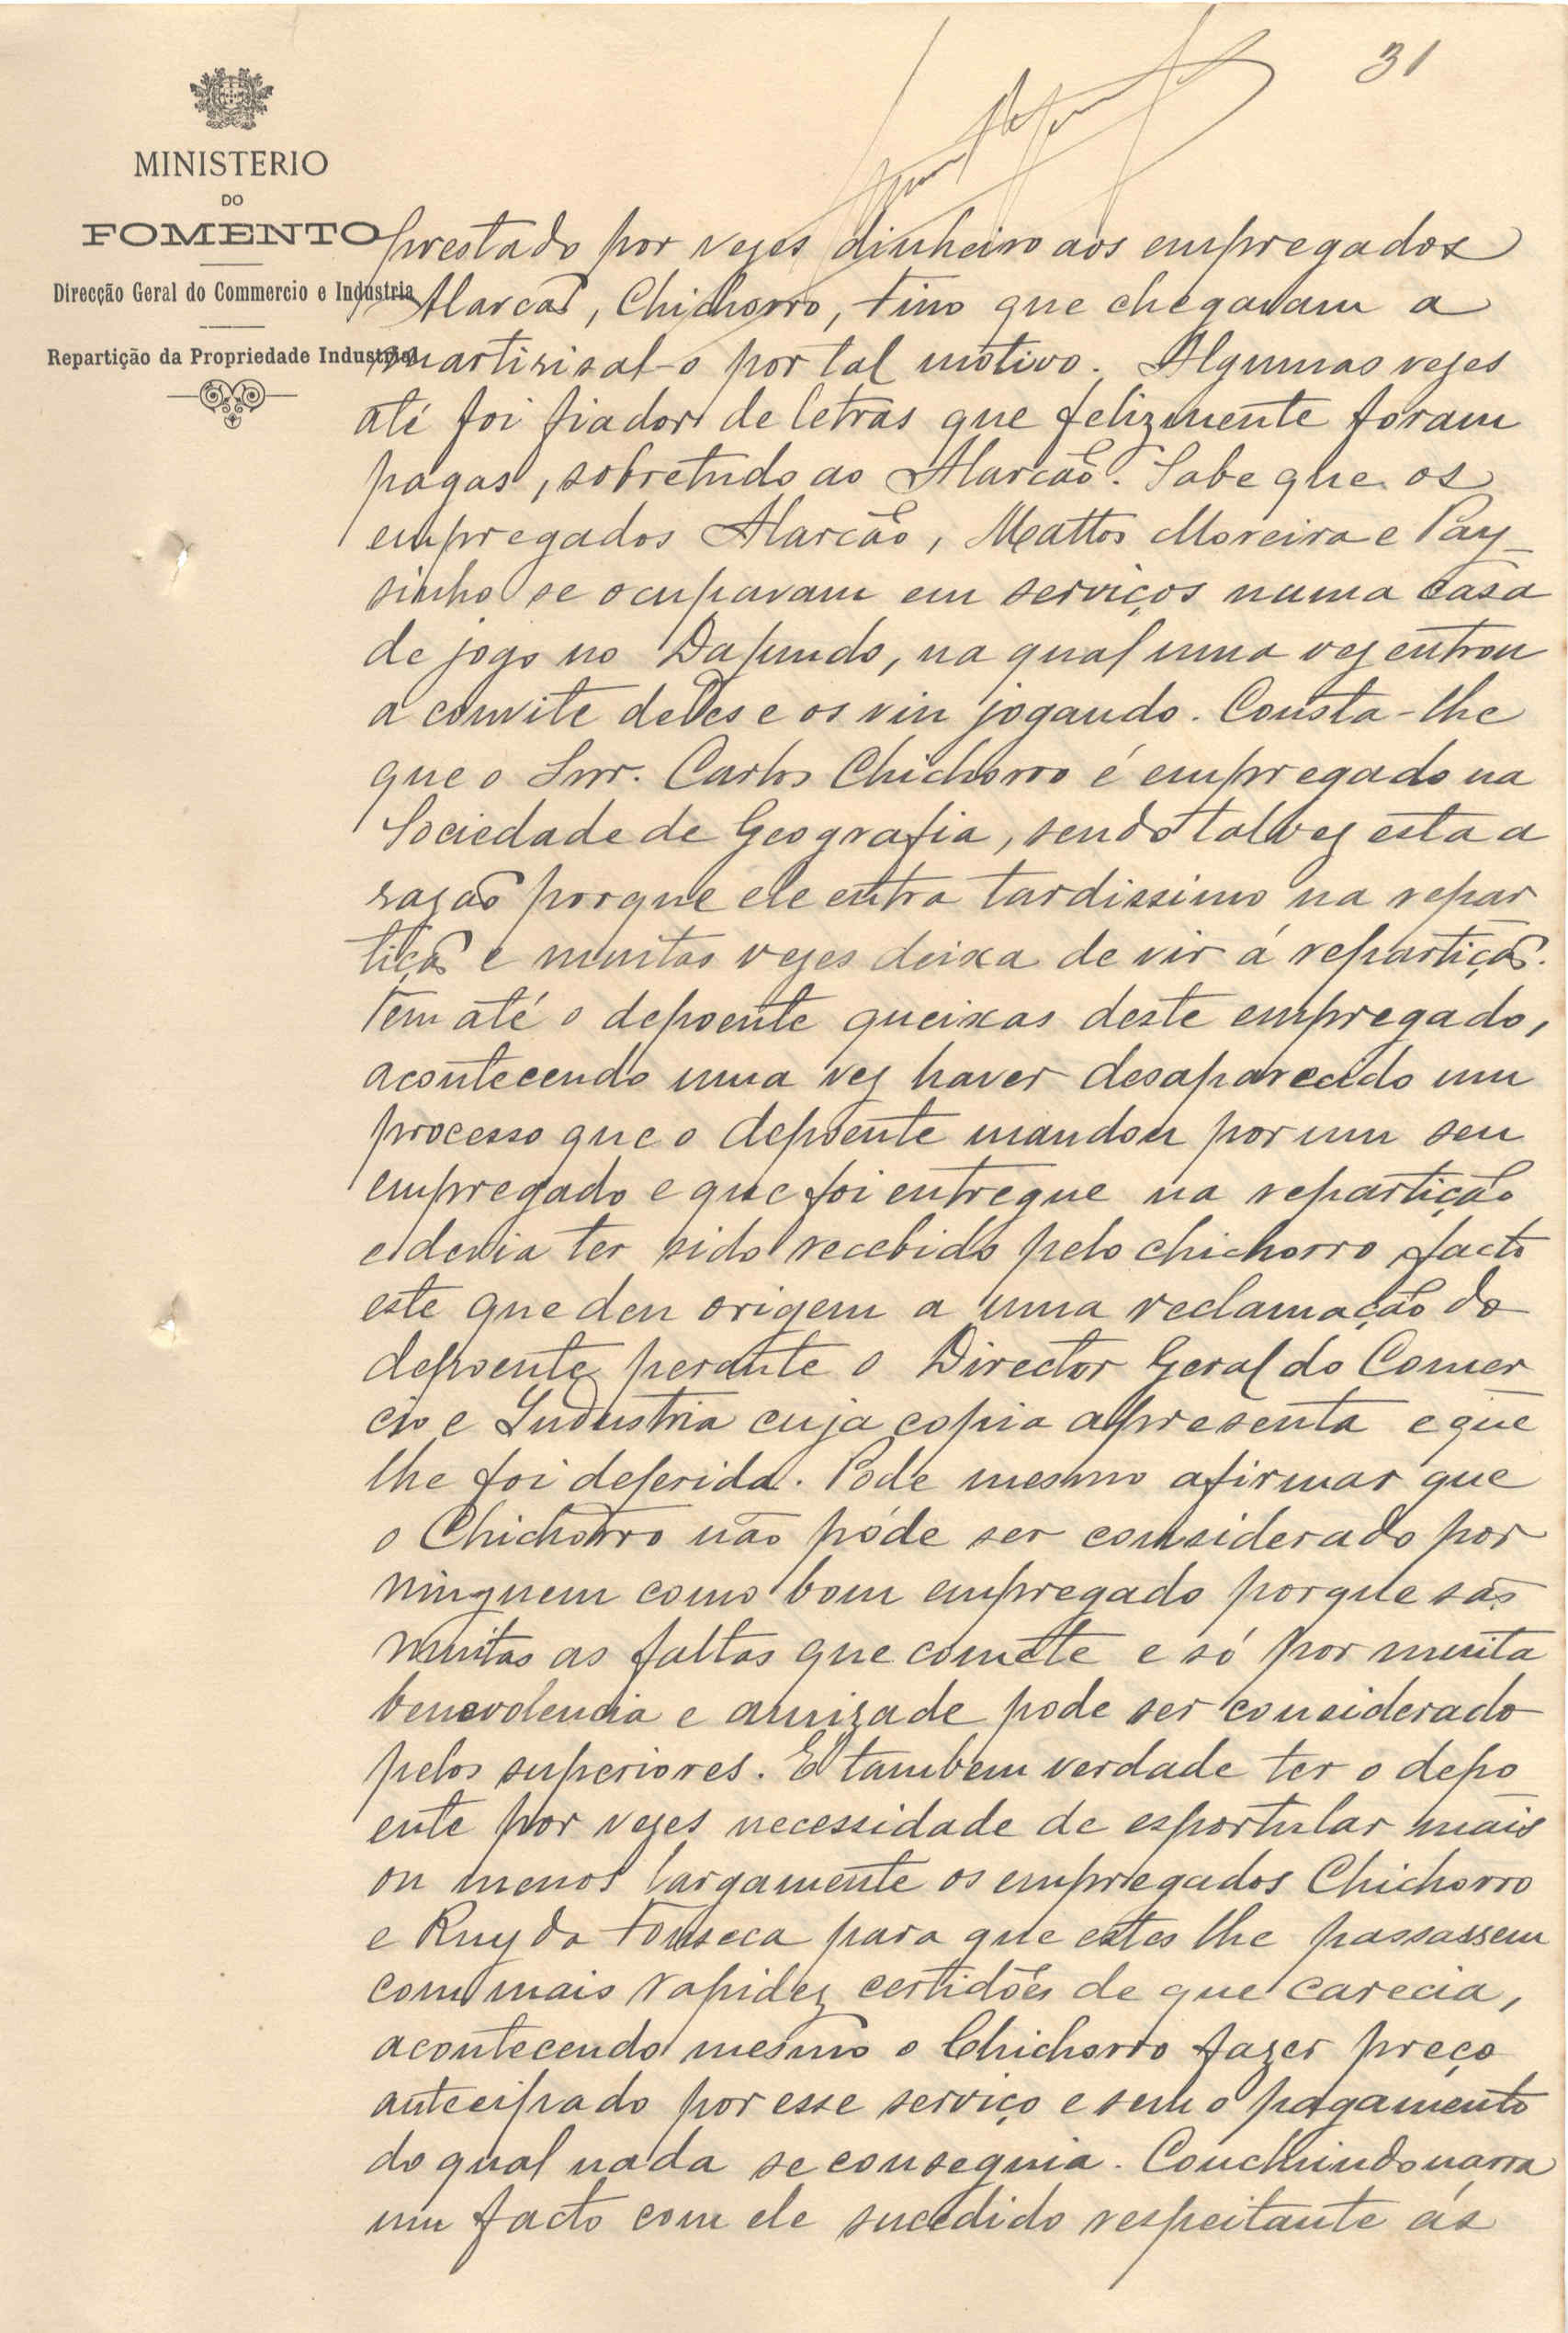 31
MINISTERIO
DO
FOMENTO
Direcção Geral do Commercio e Industria
Repartição da Propriedade Industrial
prestado por vezes dinheiro aos empregados
Alarcão, Chichorro, Tino que chegavam a
martirisal-o por tal motivo. Algumas vezes
até foi fiador de letras que felizmente foram
pagas, sobretudo ao Alarcão. Sabe que os
empregados Alarcão, Mattos Moreira e Pay-
sinho se ocupavam em serviços numa casa
de jogo no Dafundo, na qual uma vez entrou
a convite deles e os viu jogando. Consta-lhe
que o Snr. Carlos Chichorro é empregado na
Sociedade de Geografia, sendo talvez esta a
razão porque ele entra tardissimo na repar
tição e muitas vezes deixa de vir á repartição.
Tem até o depoente queixas deste empregado,
acontecendo uma vez haver desaparecido um
processo que o depoente mandou por um seu
empregado e que foi entregue na repartição
e devia ter sido recebido pelo chichorro facto
este que deu origem a uma reclamação do
depoente perante o Director Geral do Comer
cio e Industria cuja copia apresenta e que
lhe foi deferida. Pode mesmo afirmar que
o Chichorro não póde ser considerado por
ninguem como bom empregado porque são
muitas as faltas que comete e só por muita
benevolencia e amizade pode ser considerado
pelos superiores. É tambem verdade ter o depo
ente por vezes necessidade de esportular mais
ou menos largamente os empregados Chichorro
e Ruy da Fonseca para que estes lhe passassem
com mais rapidez certidões de que carecia,
acontecendo mesmo o Chichorro fazer preço
antecipado por esse serviço e sem o pagamento
do qual nada se conseguia. Concluindo narra
um facto com ele sucedido respeitante ás